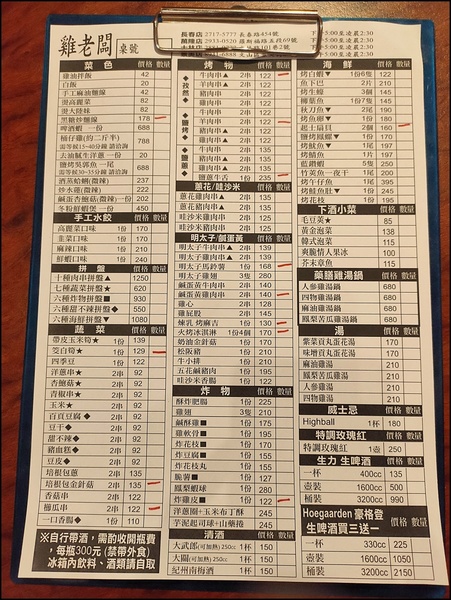 雞老闆 桌號
長春店 2717-5777 長春路454號 下午5:00至凌晨2:30
萬隆店 2933-0520 羅斯福路五段69號 下午5:00至凌晨2:30
菜色 價格 數量
雞油拌飯 42
白飯 20
手工麻油麵線 42
燙高麗菜 82
燙大陸妹 82
黑龍炒麵線 178
啤酒蝦 一份 688
桶仔雞(約二斤半) 788
需等候15~40分鐘 請洽詢
去油膩生洋蔥 一份 20
鹽烤吳郭魚 一尾 688
需等候30~35分鐘 請洽詢
酒蒸蛤蜊(微辣) 237
炒水蓮(微辣) 222
鹹蛋杏鮑菇(微辣) 一份 202
冬粉鮮蝦煲 一份 450
手工水餃 價格 數量
高麗菜口味 1份 170
韭菜口味 1份 170
麻辣口味 1份 210
鮮蝦口味 1份 240
拼盤 價格 數量
十種肉串拼盤▲ 1250
七種蔬菜拼盤★ 620
六種炸物拼盤■ 990
六種甜不辣拼盤◆ 550
六種海鮮拼盤▼ 1080
蔬菜 價格 數量
帶皮玉米筍★ 1份 139
茭白筍★ 1份 129
四季豆 1份 122
洋蔥串★ 2串 92
杏鮑菇★ 2串 92
青椒串★ 2串 92
玉米★ 2串 92
百頁豆腐◆ 2串 92
豆干◆ 2串 92
甜不辣◆ 2串 92
豬血糕◆ 2串 92
豆皮◆ 2串 92
培根包蔥 2串 135
培根包金針菇 2串 135
香菇串 2串 122
櫛瓜串 2串 122
一口香腸◆ 1份 110
※自行帶酒，需酌收開瓶費
，每瓶300元 (禁帶外食)
冰箱內飲料、酒類請自取
烤物 價格 數量
孜然
鹽烤
牛肉串▲ 2串 122
羊肉串▲ 2串 122
雞肉串▲ 2串 122
豬肉串▲ 2串 122
牛肉串▲ 2串 122
羊肉串▲ 2串 122
雞肉串▲ 2串 122
豬肉串▲ 2串 122
鹽蔥牛舌 1份 235
蔥花/哇沙米 價格 數量
蔥花雞肉串▲ 2串 135
哇沙米雞肉串 2串 135
蔥花豬肉串▲ 2串 135
明太子/鹹蛋黃 價格 數量
明太子牛肉串▲ 2串 139
明太子雞肉串▲ 2串 139
明太子馬鈴薯 1份 168
明太子雞翅 3隻 280
鹹蛋黃牛肉串 2串 140
鹹蛋黃雞肉串 2串 140
雞心 2串 128
雞屁股 2串 145
極乳烤麻吉 1份 130
火烤冰淇淋 1份4個 170
奶油金針菇 1份 150
松阪豬 1份 210
牛小排 1份 210
五花鹹豬肉 1份 195
哇沙米香腸 1份 122
炸物 價格 數量
酥炸肥腸 1份 225
雞翅 3隻 210
鹹酥雞■ 1份 190
雞軟骨■ 1份 195
炸花枝■ 1份 170
炸豆腐■ 1份 155
炸花枝丸 1份 155
洗薯■ 1份 155
鳳梨蝦球 1份 280
炸雞皮■ 1份 122
洋蔥圈+玉米布丁酥 245
芋泥起司球+山藥捲 245
清酒 價格 數量
大武郎(可加熱)250cc 1杯 150
大關(可加熱)250cc 1杯 150
紀州南梅酒 1杯 150
海鮮 價格 數量
烤白蝦▼ 1份6隻 122
魚下巴 2片 210
烤生蠔 3個 145
柳葉魚 1份7隻 145
秋刀魚▼ 2尾 190
烤魚卵▼ 1份 180
起士扇貝 2個 160
鹽烤鳳螺▼ 1份 170
烤魷魚▼ 1尾 197
烤鯖魚 1片 197
藍鑽蝦 5隻 250
竹筴魚一夜干 1份 210
烤午仔魚 1尾 395
烤鮭魚肚▼ 1份 245
烤花枝 1份 195
下酒小菜 價格 數量
毛豆莢★ 85
黃金泡菜 138
韓式泡菜 115
爽脆情人果冰 100
芥末章魚 115
藥膳雞湯鍋 價格 數量
人參雞湯鍋 680
四物雞湯鍋 680
麻油雞湯鍋 680
鳳梨苦瓜雞湯鍋 680
湯 價格 數量
紫菜貢丸蛋花湯 170
味增貢丸蛋花湯 170
麻油雞湯 210
鳳梨苦瓜雞湯 210
人參雞湯 210
四物雞湯 210
威士忌 價格 數量
Highball 1杯 180
特調玫瑰紅 價格 數量
特調玫瑰紅 1壺 250
生力 生啤酒 價格 數量
一杯 400cc 135
壺裝 1600cc 500
桶裝 3200cc 990
Hoegaarden 豪格登
生啤酒買三送一
一杯 330cc 225
壺裝 1600cc 1050
桶裝 3200cc 2150